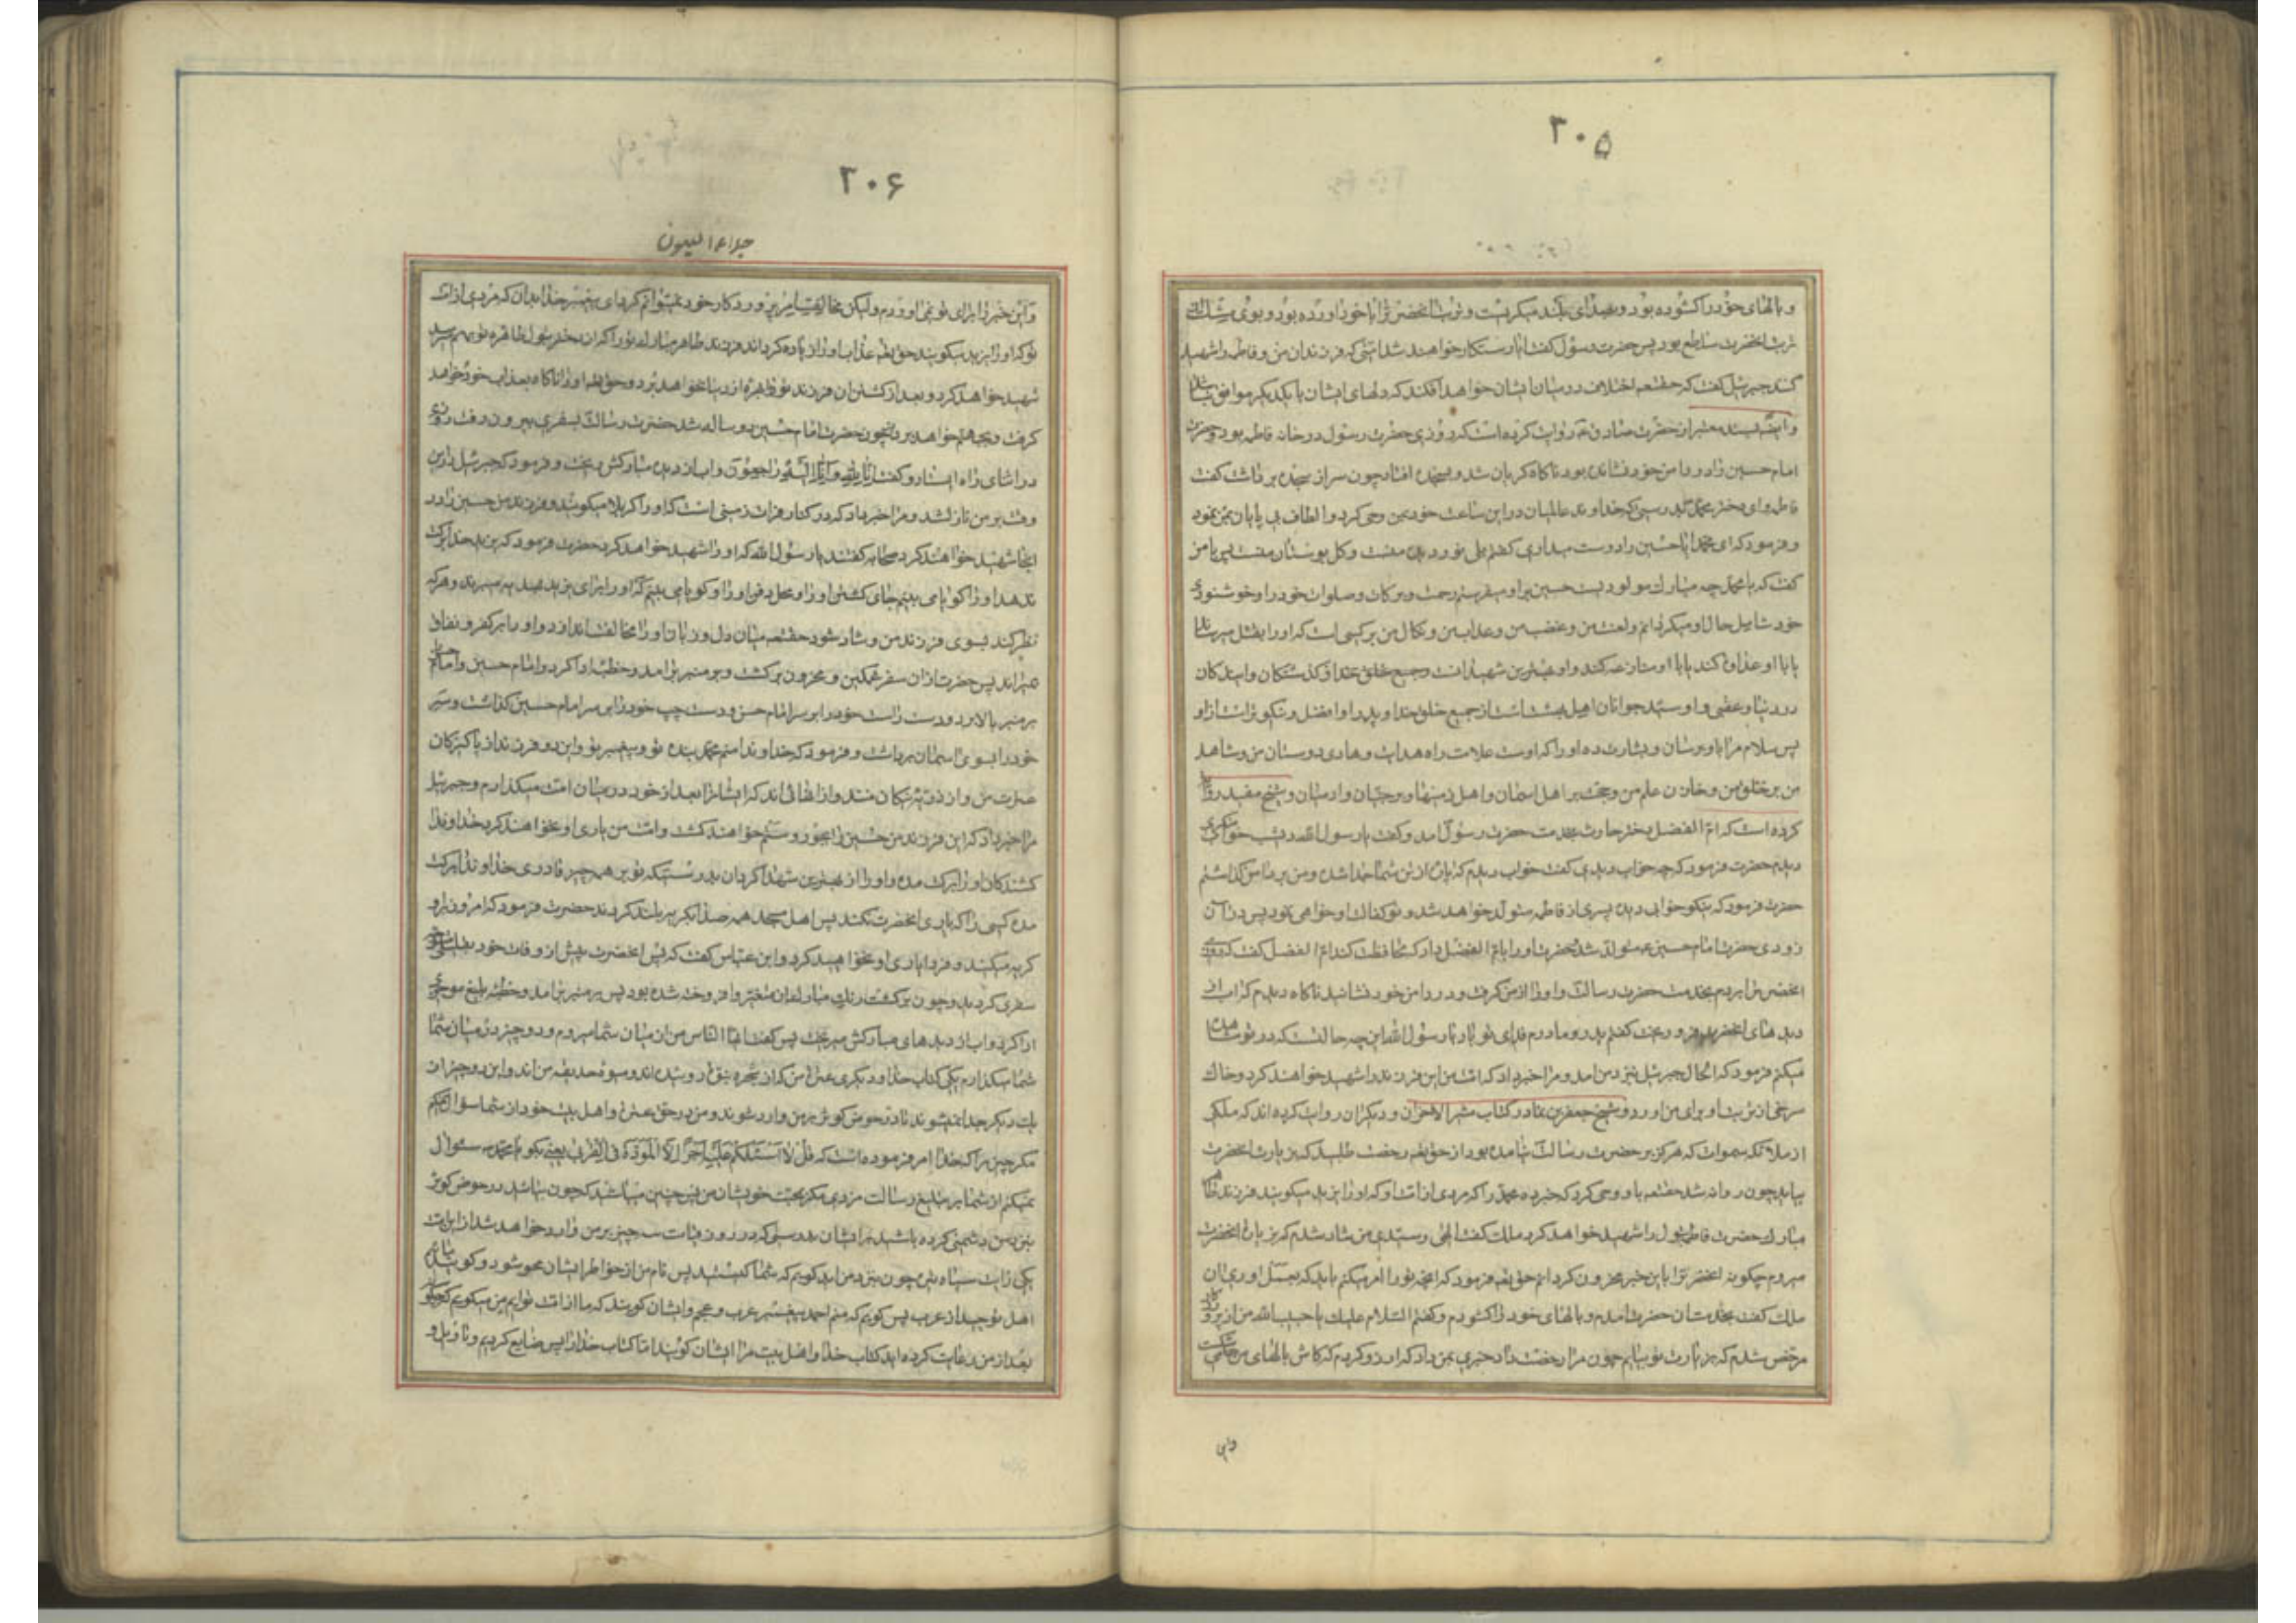 ۳۰۵
و بالهای خود را کشوده بود و بصدای بلند میکریست و تربت آنحضرت را با خود آورده بود و بوی مشک از
تربت آنحضرت ساطع بود پس حضرت رسول گفت آیا رستکار خواهند شد امتی که فرزندان من و فاطمه را شهید
کنند جبرئیل گفت که حقتعه اختلاف در میان ایشان خواهد افکند که دلهای ایشان با یکدیکر موافق نباشد
و ایضا بسند معتبر از حضرت صادق ع روایت کرده است که روزی حضرت رسول در خانه فاطمه بود و حضرت
امام حسین را در دامن خود نشانده بود ناکاه کریان شد و بسجده افتاد چون سر از سجده برداشت گفت
فاطمه ای دختر محمد بدرستیکه خداوند عالمیان در این ساعت خود بمن وحی کرد و الطاف بی پایان بمن نمود
و فرمود که ای محمد ایا حسین را دوست میداری کفتم بلی نور دیده منست و کل بوستان منست پس با من
کفت که یا محمد چه مبارک مولودیست حسین بر او میفرستم رحمت و برکات و صلوات خود را و خوشنودی
خود شامل حال او میکردانم و لعنت من و غضب من و عذاب من و نکال من بر کسی است که او را بقتل میرساند
یا با او عداوت کند یا با او منازعه کند و او بهترین شهیدانست و جمیع خلق خدا و کذشتکان و ایندکان
در دنیا و عقبی و او سید جوانان اهل بهشت است از جمیع خلق خدا و پدر او افضل و نیکوتر است از او
پس سلام مرا باو برسان و بشارت ده او را که اوست علامت راه هدایت و هادی دوستان من و شاهد
من بر خلق من و خازن علم من و حجت بر اهل اسمان و اهل زمینها و بر جنیان و ادمیان و شیخ مفید روایت
کرده است که ام الفضل دختر حارث بخدمت حضرت رسول آمد و کفت یا رسول الله دیشب خواب منکری
دیدم حضرت فرمود که چه خواب دیدی کفت خواب دیدم که پاره از تن شما جدا شده و من بر دامن کذاشتم
حضرت فرمود که نیکو خوابی دیده پسری از فاطمه متولد خواهد شد و تو کفالت او خواهی نمود پس در آن
زودی حضرت امام حسین ع متولد شد حضرت او را بام الفضل داد که محافظت کند ام الفضل کفت که روزی
آنحضرت را بردم بخدمت حضرت رسالت و او را از من کرفت و در دامن خود نشانید ناکاه دیدم که اب از
دیدهای آنحضرت فرو ریخت کفتم پدر و مادرم فدای تو باد یا رسول الله این چه حالتست که در تو مشاهده
میکنم فرمود که الحال جبرئیل بنزد من امد و مرا خبر داد که امت من این فرزند را شهید خواهند کرد و خاک
سرخی از تربت او برای من اورد و شیخ جعفر بن نما در کتاب مثیر الاحزان و دیکران روایت کرده اند که ملکی
از ملائکه سموات که هرکز بر حضرت رسالت نیامده بود از حق تعه رخصت طلبید که بزیارت آنحضرت
بیاید چون روانه شد حقتعه باو وحی کرد که خبر ده محمد را که مردی از امت او که او را یزید میکویند فرزند طاهر
مبارک حضرت فاطمه بتول را شهید خواهد کرد ملک کفت الهی و سیدی من شاد شدم که بزیارت آنحضرت
میروم چکونه آنحضرت را باین خبر محزون کردانم حق تعه فرمود که انچه تو را امر میکنم باید که بعمل اوری ان
ملک کفت بخدمت ان حضرت امدم و بالهای خود را کشودم و کفتم السلام علیک یا حبیب الله من از پروردکار
مرخص شدم که بزیارت تو بیایم چون مرا رخصت داد خبری بمن داد که ارزو کردم که کاش بالهای من میشکست
و این
۳۰۶
جلاء العیون
و این خبر را برای تو نمی اوردم ولیکن مخالفت امر پروردکار خود نمیتوانم کرد ای پیغمبر خدا بدان که مردی از امت
تو که او را یزید میکویند حق تعه عذاب او را زیاده کرداند فرزند طاهر مبارک تو را که از دختر بتول طاهره تو بهم رسد
شهید خواهد کرد و بعد از کشتن ان فرزند تو بهره از دنیا نخواهد برد و حق تعه او را ناکاه بعذاب خود خواهد
کرفت و بجهنم خواهد برد و چون حضرت امام حسین دو ساله شد حضرت رسالت بسفری بیرون رفت روزی
در اثنای راه ایستاد و کفت اِنّا لِلّهِ وَاِنّا اِلَیهِ راجِعُونَ و اب از دیده مبارکش ریخت و فرمود که جبرئیل در این
وقت بر من نازل شد و مرا خبر داد که در کنار فرات زمینی است که او را کربلا میکویند و فرزند من حسین را در
انجا شهید خواهند کرد صحابه کفتند یا رسول الله که او را شهید خواهد کرد حضرت فرمود که یزید خدا برکت
ندهد او را کویا می بینم جای کشتن او را و محل دفن او را و کویا می بینم که سر او را برای یزید بهدیه میبرند و هر که
نظر کند بسوی سر فرزند من و شاد شود حقتعه میان دل و زبان او را مخالفت اندازد و او را بر کفر و نفاق
میراند پس حضرت از ان سفر غمکین و محزون برکشت و بر منبر برامد و خطبه ادا کرد و امام حسین و امام حسن را
بر منبر بالا برد و دست راست خود را بر سر امام حسن و دست چپ خود را بر سر امام حسین کذاشت و سر
خود را بسوی اسمان برداشت و فرمود که خداوندا منم محمد بنده تو و پیغمبر تو و این دو فرزند از پاکیزکان
عترت من و از ذریه نیکان منند و از انهائی اند که ایشان را بعد از خود در میان امت میکذارم و جبرئیل
مرا خبر داد که این فرزند من حسین را بجور و ستم خواهند کشت و امت من یاری او نخواهند کرد خداوندا
کشندکان او را برکت مده و او را از بهترین شهدا کردان بدرستیکه تو بر همه چیز قادری خداوندا برکت
مده کسی را که یاری آنحضرت نکند پس اهل مسجد همه صدا بکریه بلند کردند حضرت فرمود که امروز بر او
کریه میکنید و فردا یاری او نخواهید کرد و ابن عباس کفت که پس آنحضرت پیش از وفات خود بچند روز
سفری کرد و چون برکشت رنک مبارک ان متغیر و افروخته شده بود پس بر منبر برامد و خطبه بلیغ موجزی
ادا کرد و اب از دیدهای مبارکش میریخت پس کفت ایها الناس من از میان شما میروم و دو چیز در میان شما
شما میکذارم یکی کتاب خدا و دیکری عترت من که از شجره من روئیده اند و میوه حدیقه من اند و این دو چیز از
یکدیکر جدا نمیشوند تا در حوض کوثر بر من وارد شوند و من در حق عترت و اهل بیت خود از شما سؤال نمیکنم
مکر چیزیرا که خدا امر فرموده است که قُل لا اَسئَلُکُم عَلَیهِ اَجرًا اِلَّا المَوَدَّةَ فِی القُربی یعنی بکو یا محمد سئوال
نمیکنم از شما بر تبلیغ رسالت مزدی مکر محبت خویشان من پس چنین مباشید که چون بیائید در حوض کوثر
بنزد من دشمنی کرده باشید با ایشان بدرستیکه در روز قیامت سه چیز بر من وارد خواهد شد از این امت
یکی رایت سیاه تیره چون بنزد من آید کویم که شما کیستید پس نام من از خواطر ایشان محو شود و کویند ما
اهل توحید از عرب پس کویم که منم احمد پیغمبر عرب و عجم و ایشان کویند که ما از امت توایم من میکویم که چکونه
بعد از من رعایت کرده اید کتاب خدا و اهل بیت مرا ایشان کویند اما کتاب خدا را پس ضایع کردیم و تاویل و